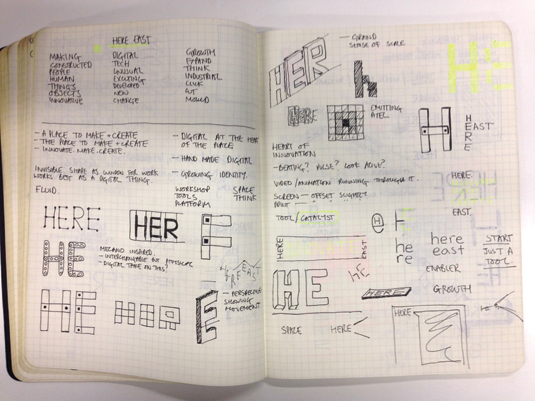 HERE EAST
MAKING
CONSTRUCTED
PEOPLE
HUMAN
THINGS
OBJECTS
INNOVATIVE
DIGITAL
TECH
UNUSUAL
EVOLVING
DEVELOPED
NEW
CHANGE
GROWTH
EXPAND
THINK
INDUSTRIAL
CLICK
CUT
MOULD
- A PLACE TO MAKE + CREATE
- THE PLACE TO MAKE + CREATE
- INNOVATE. MAKE. CREATE.
INVISIBLE SHAPE AS WHEN FOR WORK
WORKS BEST AS A DIGITAL THING.
FLUID
- DIGITAL AT THE HEART
OF THE PLACE
- HAND MADE DIGITAL
- GROWING IDENTITY.
WORKSHOP
TOOLS
PLATFORM
SPACE
THINK
HERE
HER
HE
MECCANO INSPIRED.
- INTERCHANGABLE BUT PHYSICAL
- DIGITAL TAKE ON THIS!
HE
HER
E
- PERSPECTIVE
SHOWING
MOVEMENT
HER
- GRAND
SENSE OF SCALE
h
HE
HERE
EMITTING
AFTER
H
EAST
HERE
HEART OF
INNOVATION
- BEATING? PULSE? LOOK ALIVE?
VIDEO/ANIMATION RUNNING THROUGH IT.
SCREEN - OFFSET SLIGHTLY
HERE
EAST
TOOL/CATALYST
HERE
EAST
HE
hE
e
he
re
here
east
START
JUST A
TOOL
ENABLER
HERE
GROWTH
SPACE
HERE
HERE
HE